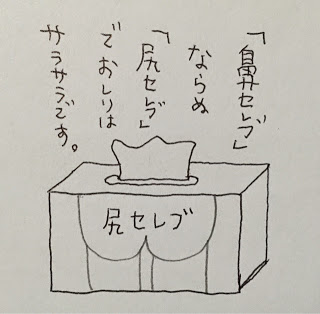 「鼻セレブ」
ならぬ
「尻セレブ」
でおしりは
サラサラです。
尻セレブ